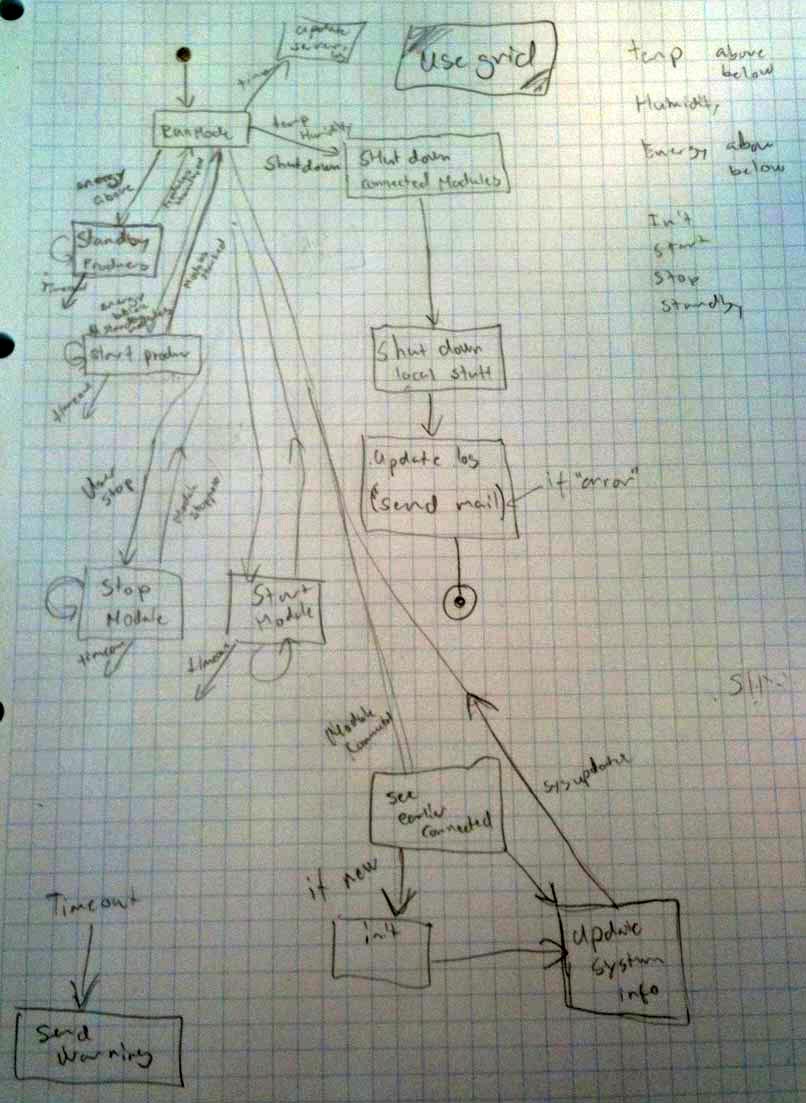 update
server
use grid
temp above
below
Humidity
Energy above
below
Init
Start
Stop
Standby
time
RunMode
temp
Humidity
Shutdown
Shut down
connected Modules
energy
above
Standby
Producers
Timeout
energy
below
Module
started
Start produc
timeout
Shut down
local stuff
Update log
(send mail)
if "error"
User
Stop
Module
Stopped
Stop
Module
timeout
Start
Module
timeout
Module
Connected
sysupdate
see
earlier
connected
if new
init
Update
system
info
Timeout
Send
Warning